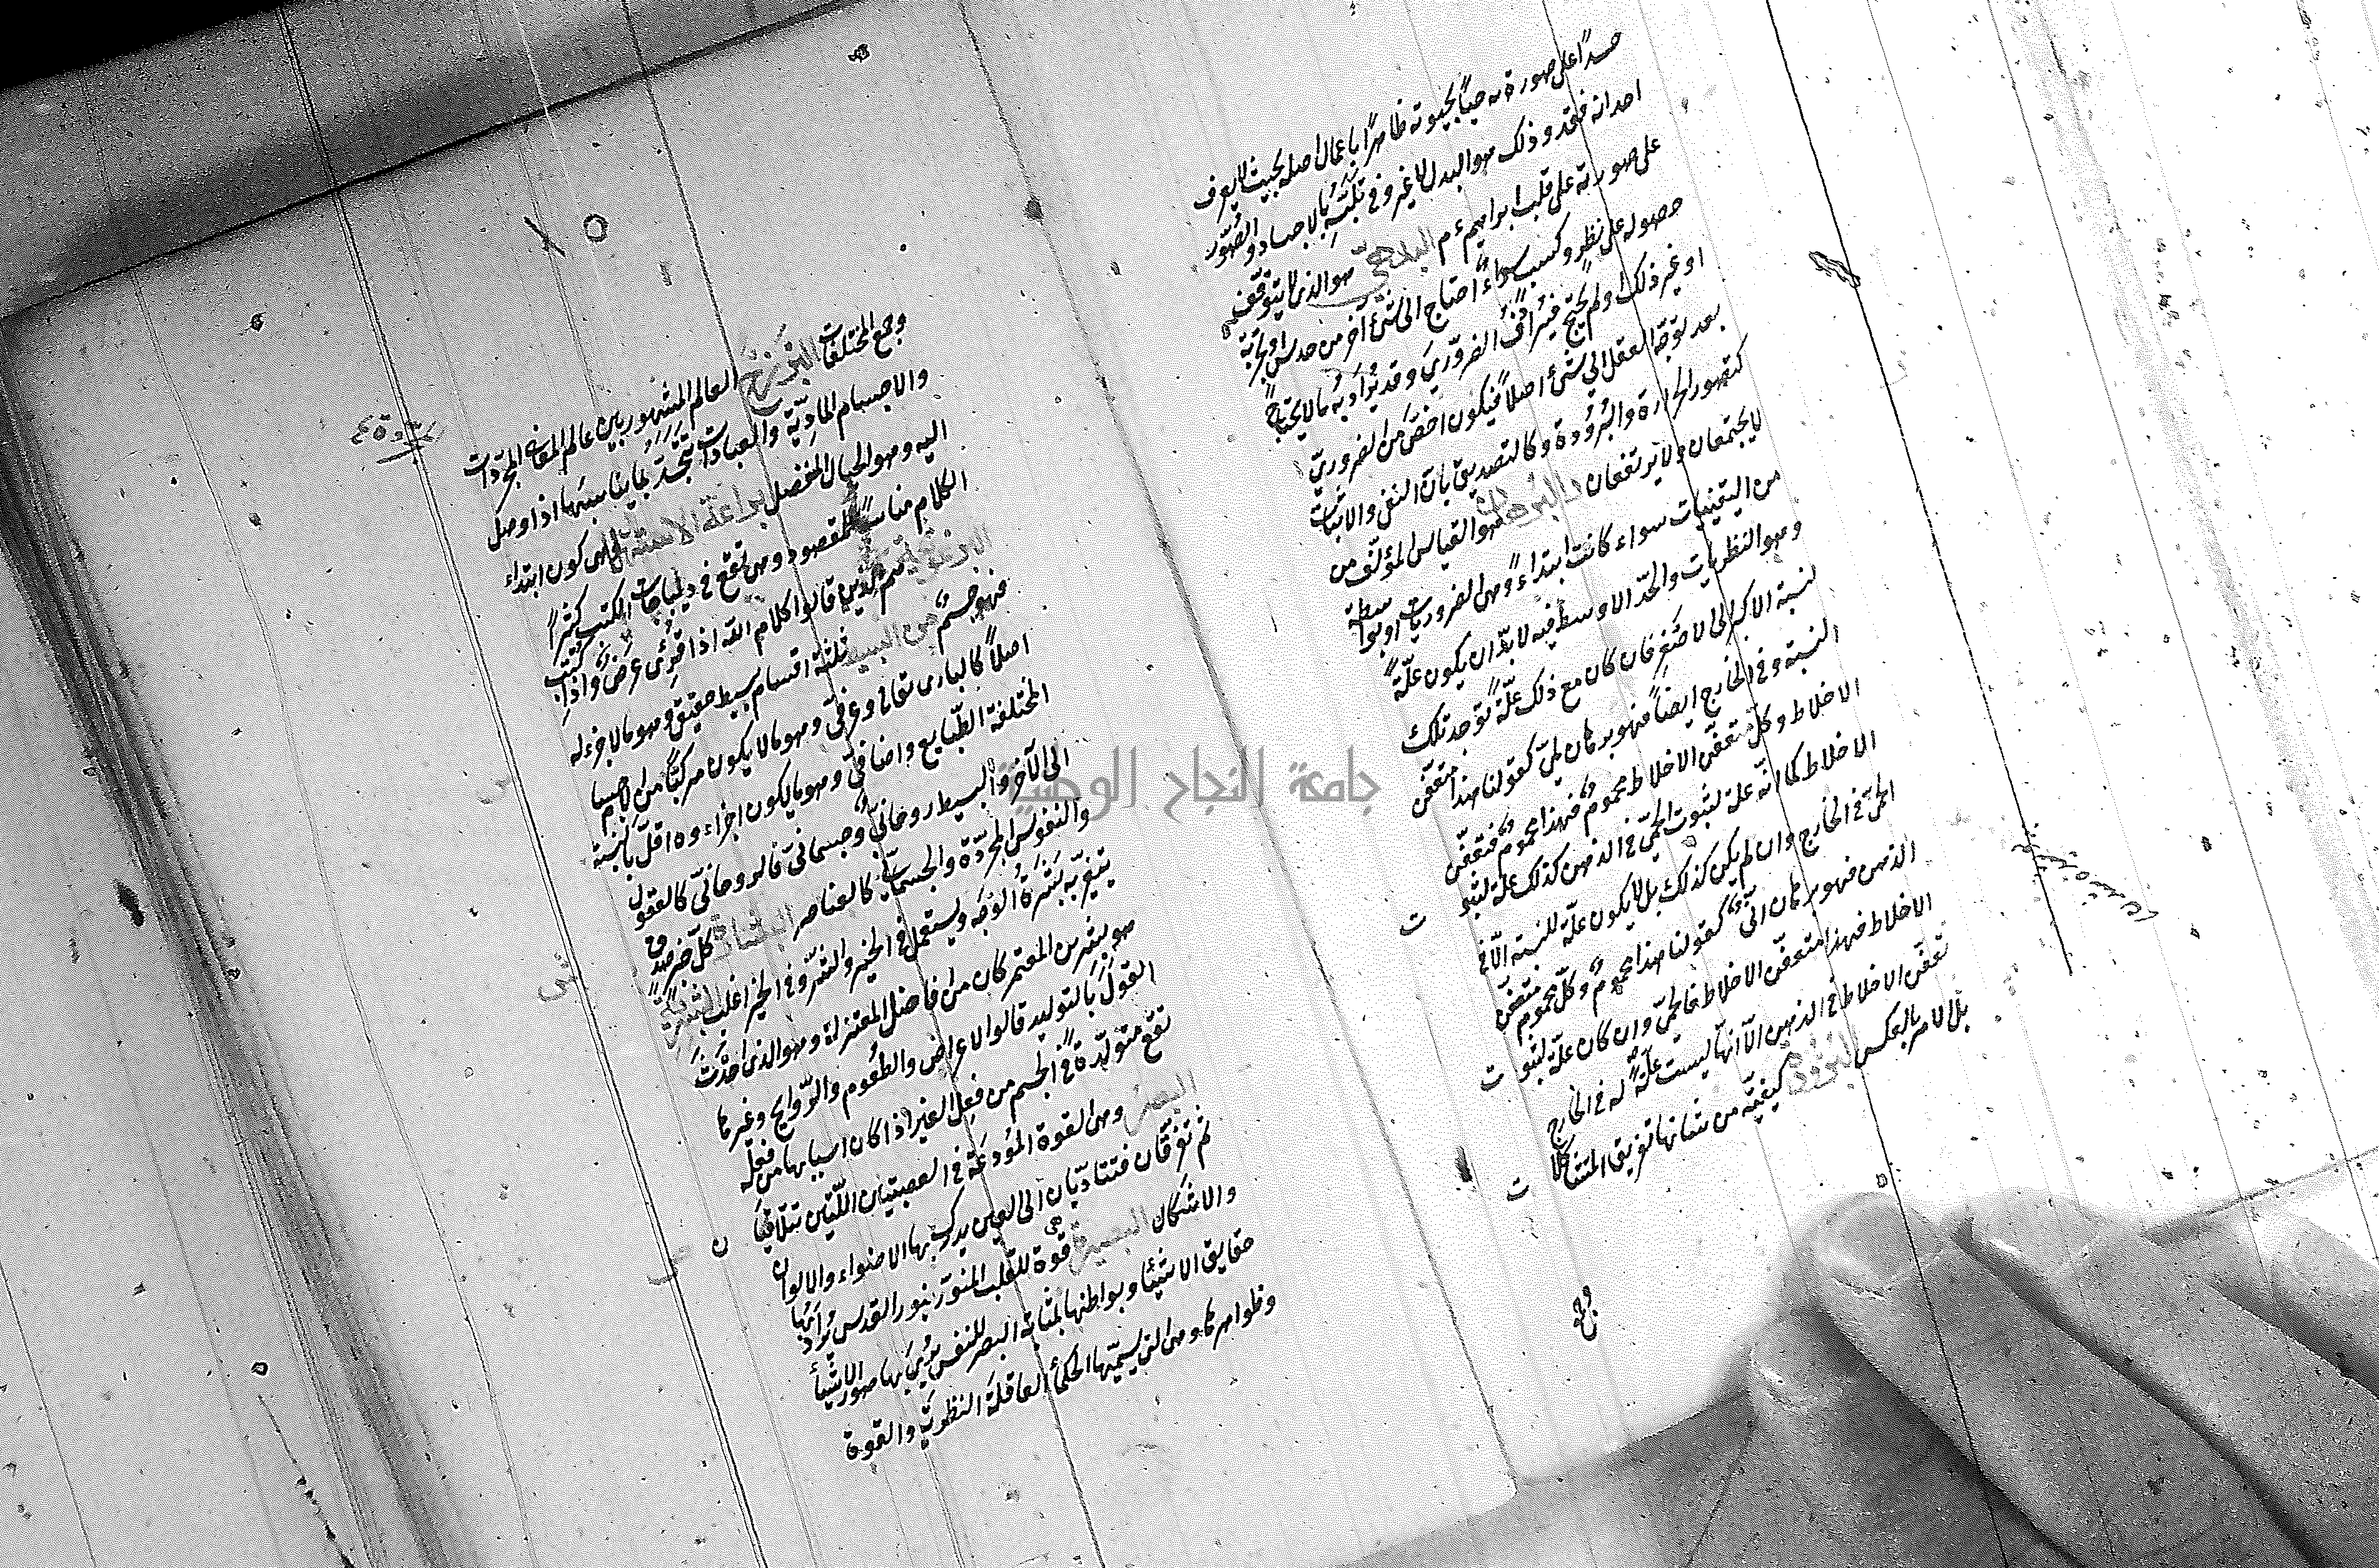 جسدا على صورته حيا بحيوته ظاهرا باعمال اصله بحيث لا يعرف
احد انه فقد وذلك هو البدل لا غير وفي تلبسه بالاجساد والصور
على صورته على قلب ابراهيم ءم البديهي هو الذي لا يتوقف
حصوله على نظر وكسب سواء احتاج الى شئ آخر من حدس او تجربة
او غير ذلك ولم يحتج فيرادف الضروري وقد يراد به ما لا يحتاج
بعد توجه العقل الى شئ اصلا فيكون اخص من الضروري
كتصور الحرارة والبرودة وكالتصديق بان النفي والاثبات
لا يجتمعان ولا يرتفعان البرهان هو القياس المؤلف من
من اليقينيات سواء كانت ابتداء وهى الضروريات او بواسطة
وهو النظريات والحد الاوسط فيه لا بد ان يكون علة
لنسبة الاكبر الى الاصغر فان كان مع ذلك علة توجد تلك
النسبة وفى الخارج ايضا فهو برهان لمي كقولنا هذا متعفن
الاخلاط وكل متعفن الاخلاط محموم فهذا محموم فتعفن
الاخلاط كما انه علة لثبوت الحمى في الذهن كذلك علة لثبوت
الحمى في الخارج وان لم يكن كذلك بل لا يكون علة للنسبة الا في
الذهن فهو برهان انى كقولنا هذا محموم وكل محموم متعفن
الاخلاط فهذا متعفن الاخلاط فالحمى وان كان علة لثبوت
تعفن الاخلاط في الذهن الا انها ليست علة له في الخارج
بل الامر بالعكس البرودة كيفية من شانها تفريق المتشاكلات
وجمع
وجمع المختلفات البرزخ العالم المشهور بين عالم المعاني المجردات
والاجسام المادية والعبادات تتجسد بما يناسبها اذا وصل
اليه وهو الخيال المنفصل براعة الاستهلال هى كون ابتداء
الكلام مناسبا للمقصود وهى تقع في ديباجات الكتب كثيرا
هم الذين قالوا كلام الله اذا قرئ عرض واذا كتب
فهو جسم البسيط ثلثة اقسام بسيط حقيقي وهو ما لا جزء له
اصلا كالبارى تعالى وعرفى وهو ما لا يكون مركبا من الاجسام
المختلفة الطبايع واضافي وهو ما يكون اجزاءه اقل بالنسبة
الى الآخر والبسيط روحاني وجسماني فالروحاني كالعقول
والنفوس المجردة والجسماني كالعناصر البشارة كل خبر صدق
يتغير به بشرة الوجه ويستعمل في الخير والشر وفى الخير اغلب البشرية
هو بشر بن المعتمر كان من افاضل المعتزلة وهو الذى احدث
القول بالتوليد قالوا الاعراض والطعوم والروايح وغيرها
تقع متولدة في الجسم من فعل الغير اذا كان اسبابها من فعله
البصر وهى القوة المودعة في العصبتين اللتين تتلاقيان
ثم تفرقان فتتاديان الى العين يدرك بها الاضواء والالوان
والاشكال البصيرة قوة للقلب المنور بنور القدس يرا بها
حقايق الاشيا وبواطنها بمثابة البصر للنفس يرى بها صور الاشيا
وظواهرها وهى التى يسميها الحكما العاقلة النظرية والقوة
جامعة النجاح الوطنية